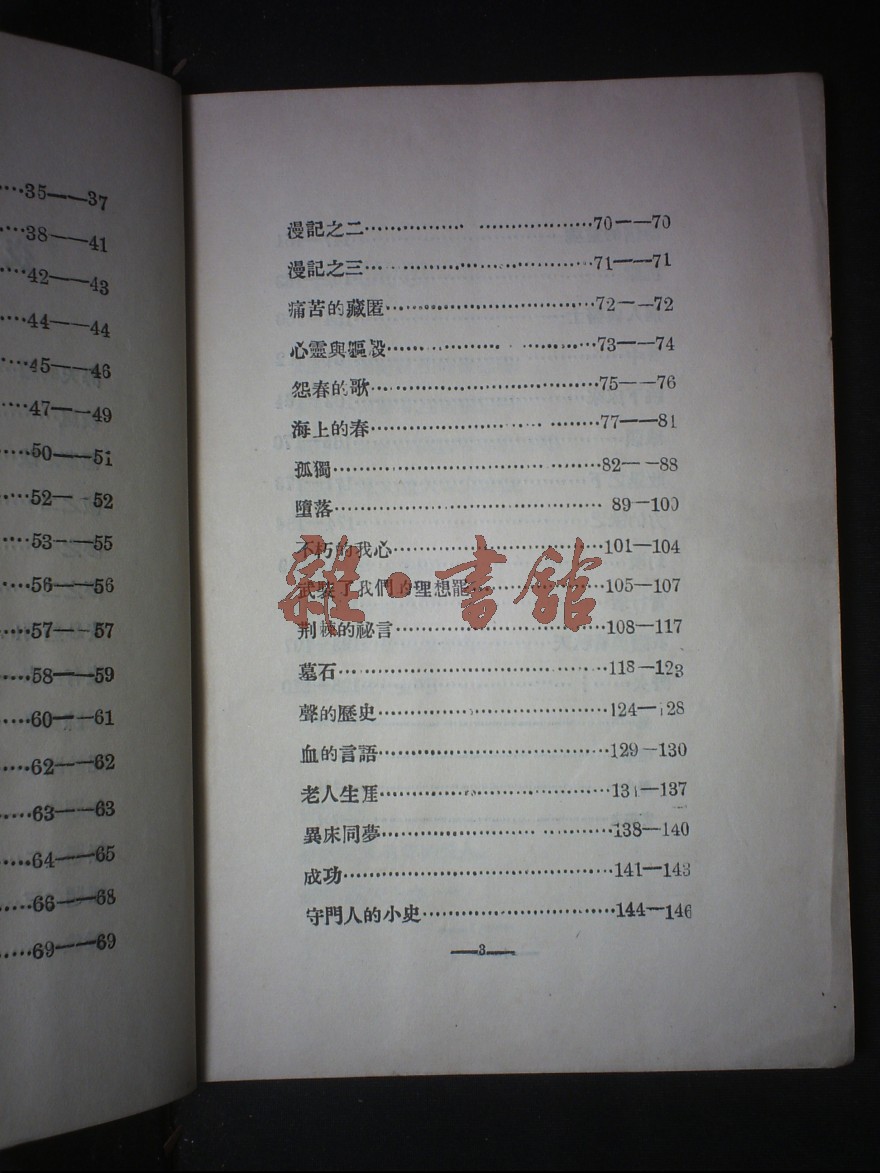 …35——37
…38——41
…42——43
…44——44
…45——46
…47——49
…50——51
…52——52
…53——55
…56——56
…57——57
…58——59
…60——61
…62——62
…63——63
…64——65
…66——68
…69——69
漫記之二……………… ………………70——70
漫記之三… ……… ………………71——71
痛苦的藏匿…………………………72——72
心靈與軀殼………… … …………73——74
怨春的歌……………………………75——76
海上的春…………………… ………77——81
孤獨……………………… …………82——88
墮落………………………………… 89—100
不朽的我心…………………………101—104
武裝了我們的理想罷………………105—107
荆棘的祕言…………………………108—117
墓石…………………………………118—123
聲的歷史……………………………124—128
血的言語……………………………129—130
老人生涯……………………………131—137
異床同夢………………… …………138—140
成功…………………………………141—143
守門人的小史………………………144—146
——3——
雜·書館